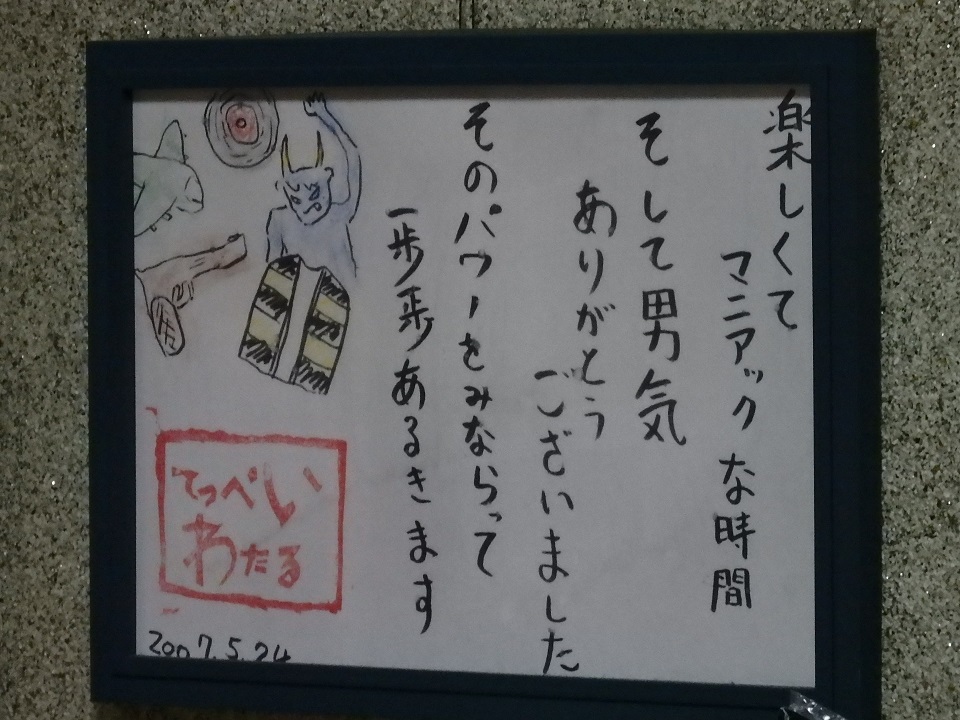 楽しくて
マニアックな時間
そして男気
ありがとう
ございました
そのパワーをみならって
一歩一歩あるきます
てっぺい
わたる
2007.5.24